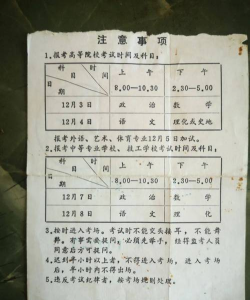 注意事项
1.报考高等院校考试时间及科目:
科目 时间 日期 上午 下午
8.00—10.30 2.30—5.00
12月3日 政治 数学
12月4日 语文 理化或史地
报考外语、艺术、体育专业12月5日加试。
2.报考中等专业学校、技工学校考试时间及科目:
科目 时间 日期 上午 下午
8.00—10.30 2.30—5.00
12月7日 政治 数学
12月8日 语文 理化
3.按时进入考场。考试时不能交头接耳,不能舞
弊。有事需要提问,必须先举手,经得监考人员
同意后方可提问。
4.迟到半小时以上者,不得进入考场,进入考场
后,半小时内不得出场。
5.违反考试纪律者,按考场规则处理。